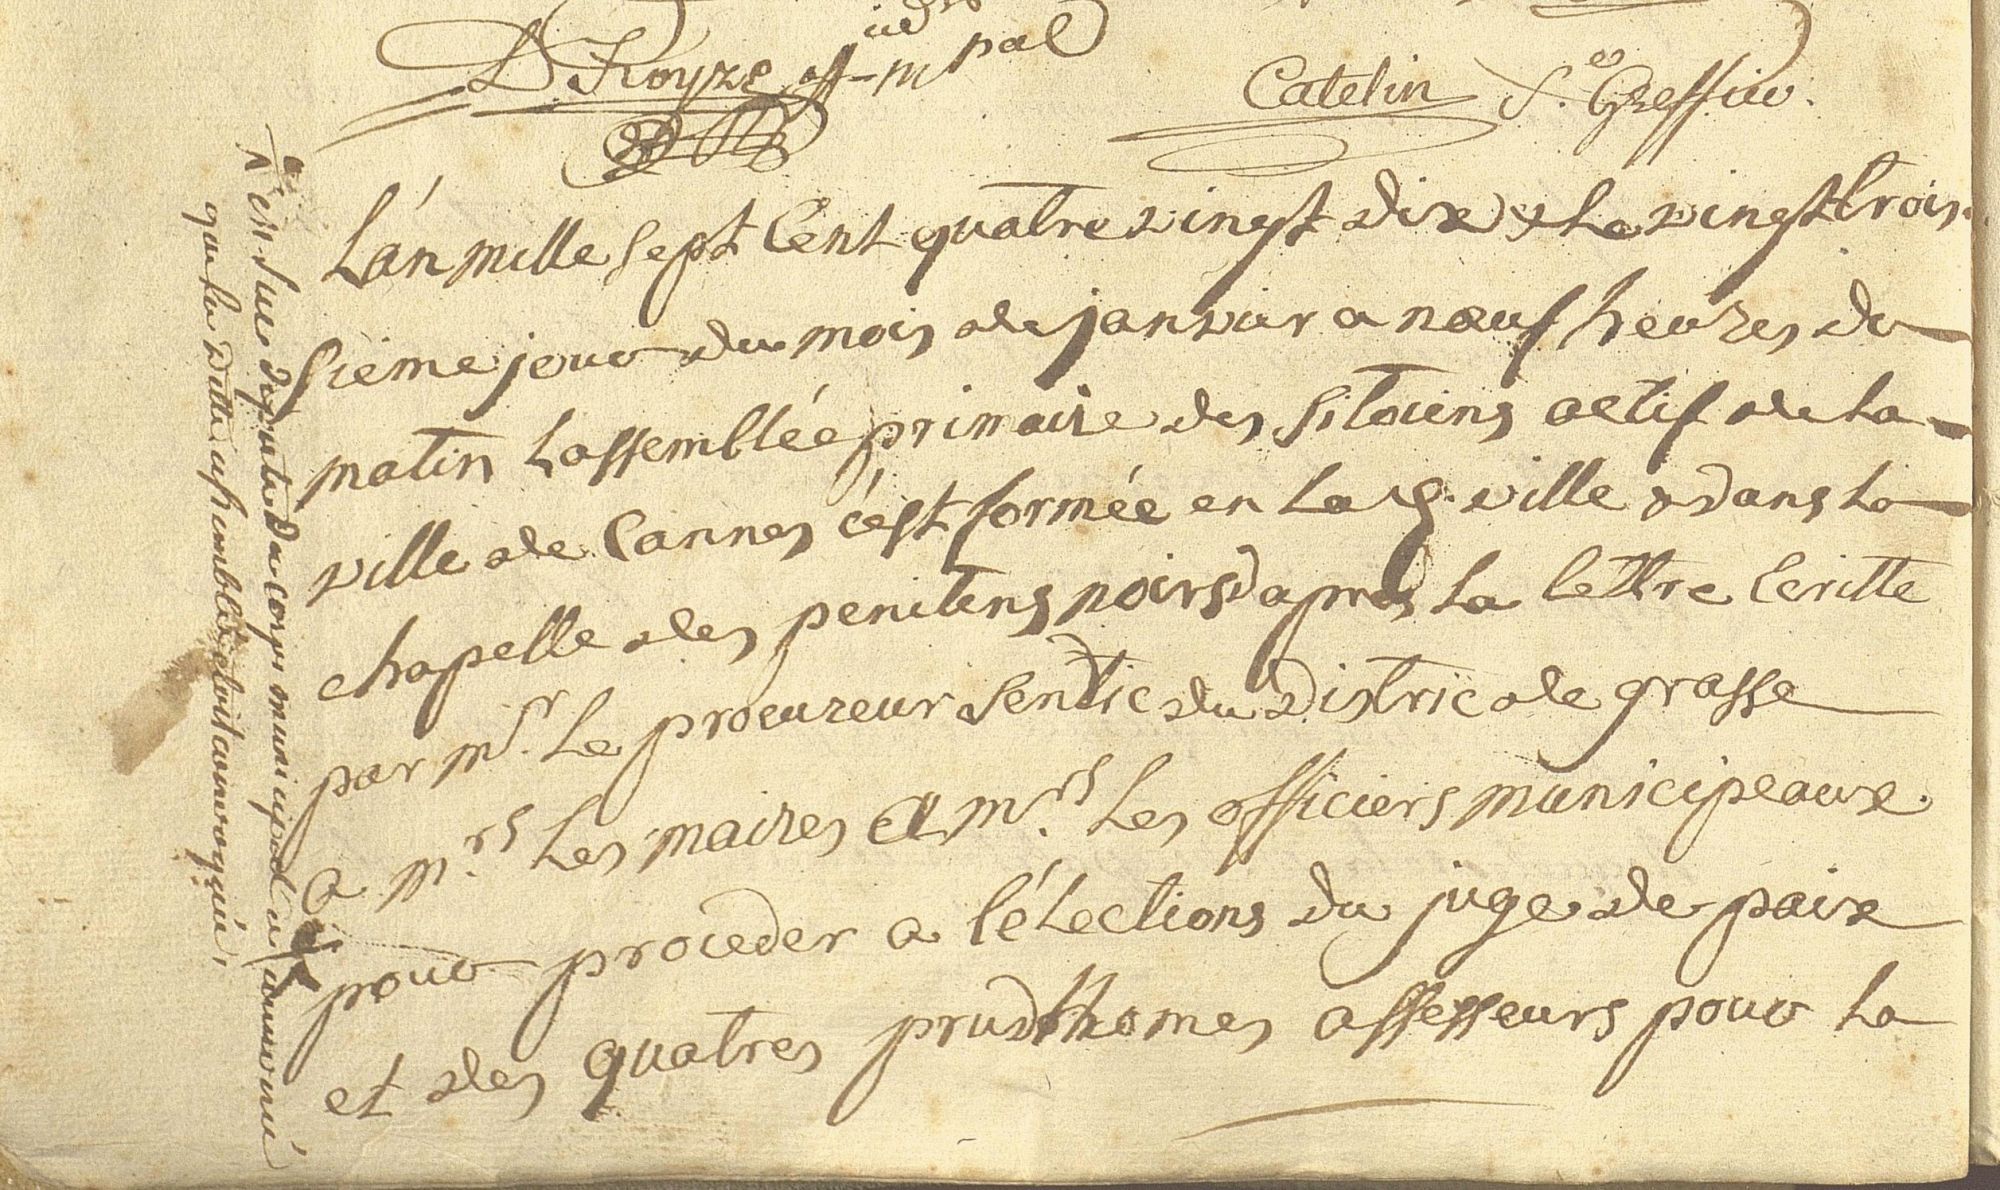 D Royze off. mpal
Catelin S.re Greffier.
L'an mille sept Cent quatre vingt dix & Le vingt trois
sième jour du mois de janvier a neuf heures du
matin Lassemblée primaire des sitoiens actif de La
ville de Cannes c'est formée en La d. ville & dans La
chapelle des penitens noirs d'apres La lettre Ecritte
par mr. Le procureur sendic du district de grasse
a mrs. Les maires et mrs. Les officiers municipeaux
pour proceder a l'élections du juge de paix
et des quatres prudthomes assesseurs pour La
deputé du corps municipal
que la ditte assemblée etoit convoquée,